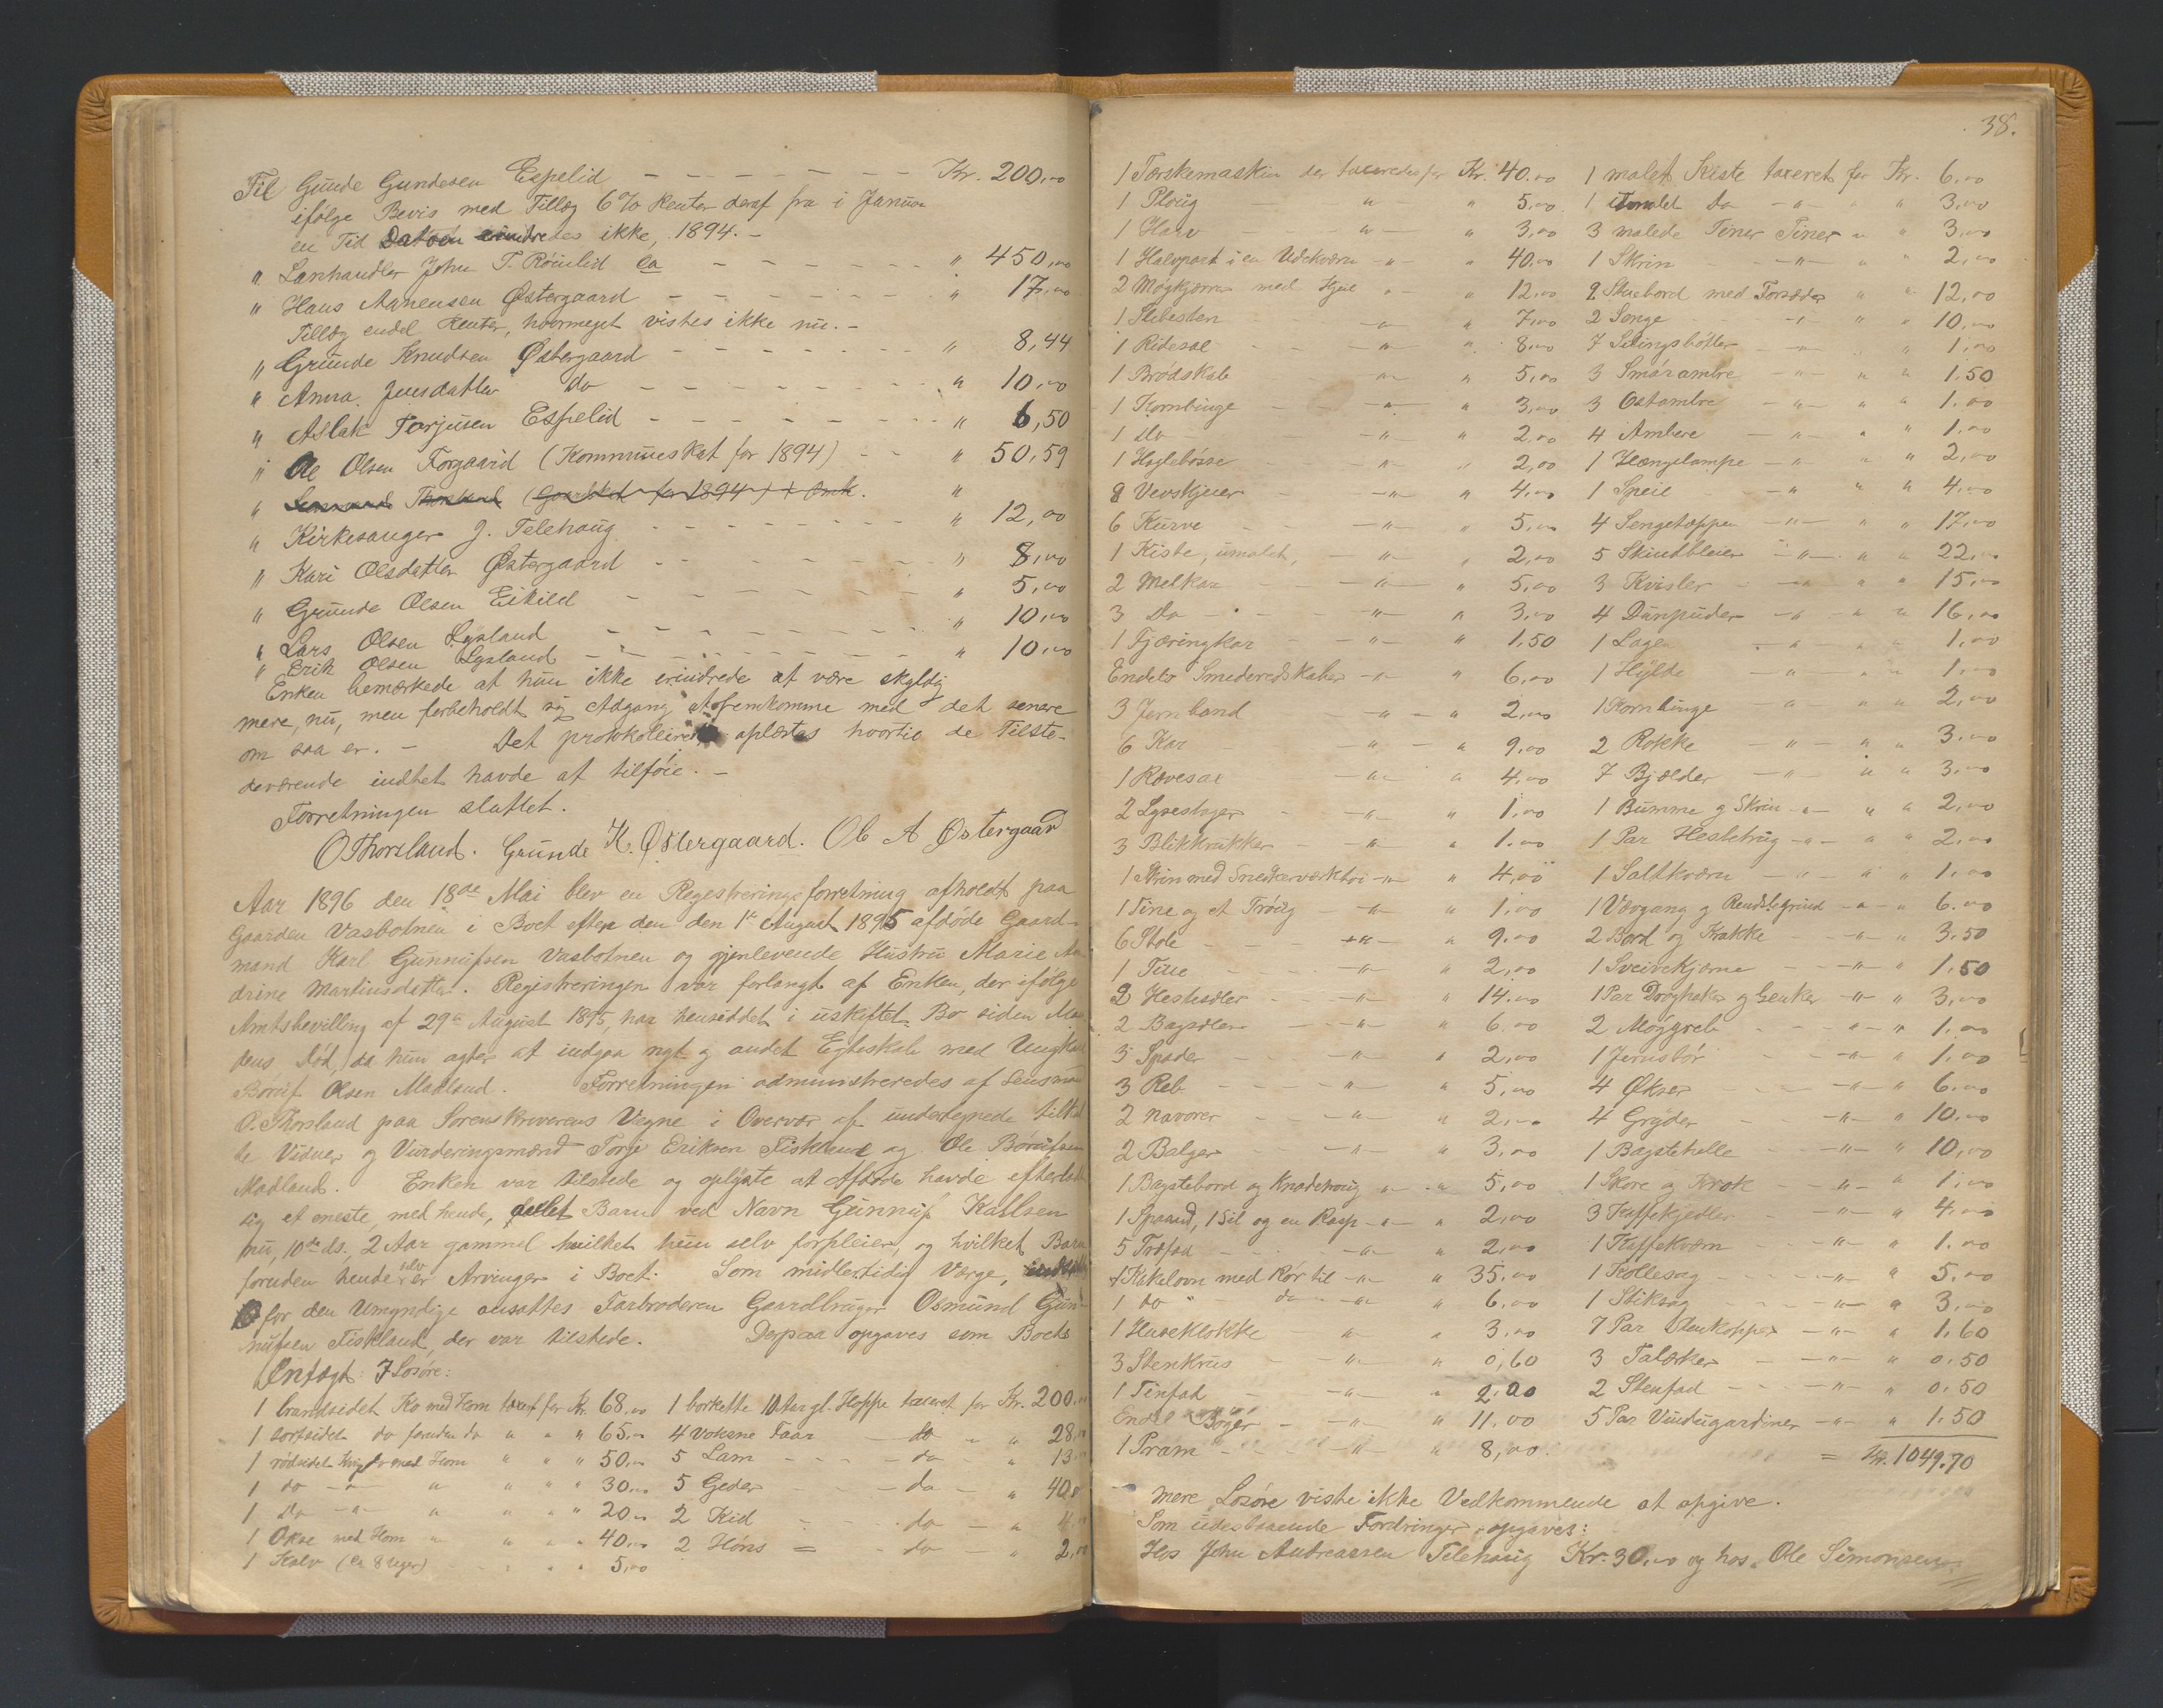 Til Gunde Gundesen Espelid - - - - - - - Kr. 200,00
ifølge Bevis med Tillæg 6 % Renter deraf fra i Januar
en Tid Datoen erindredes ikke, 1894. -
" Lanhandler John T. Røinlid ca - - - - - " 450,00
" Hans Aanensen Østergaard - - - - - - " 17,00
Tillæg endel Renter, hvormeget vistes ikke nu. -
" Grunde Knudsen Østergaard - - - - - - " 8,44
" Anna Jensdatter do - - - - - - - " 10,00
" Aslak Torjusen Espelid - - - - - - - " 6,50
" Ole Olsen Forgaard (Kommuneskat for 1894) - - " 50,59
" Thorsland (Gaardskat for 1894) + Omk. "
" Kirkesanger J. Telehaug - - - - - - - " 12,00
" Kari Olsdatter Østergaard - - - - - - " 8,00
" Grunde Olsen Eikild - - - - - - - " 5,00
" Lars Olsen Lysland - - - - - - - " 10,00
" Erik Olsen Lysland - - - - - - - " 10,00
Enken bemærkede at hun ikke erindrede at være skyldig
mere, nu, men forbeholdt sig Adgang at fremkomme med det senere
om saa er. - Det protokollerede oplæstes hvortil de Tilste-
deværende indtet havde at tilføie. -
Forretningen sluttet.
O Thorsland. Grunde K. Østergaard. Ole A Østergaard
Aar 1896 den 18de Mai blev en Regestreringsforretning afholdt paa
Gaarden Vasbotnen i Boet efter den den 1ste August 1895 afdøde Gaard-
mand Karl Gunnufsen Vasbotnen og gjenlevende Hustru Marie An
drine Martinsdatter. Registreringen var forlangt af Enken, der ifølge
Amtsbevilling af 29de August 1895, har hensiddet i uskiftet Bo siden Man
dens Død, da hun agter at indgaa nyt og andet Egteskab med Ungkarl
Boruf Olsen Madland. Forretningen administreredes af Lensman
O. Thorsland paa Sorenskriverens Vegne i Overvær af undertegnede tilkal
te Vidner og Vurderingsmænd Torje Eriksen Fiskland og Ole Børufsen
Madland. Enken var tilstede og oplyste at Afdøde havde efterladt
sig et eneste, med hende, avlet Barn ved Navn Gunnuf Kallsen
nu, 10de ds. 2 Aar gammel hvilket hun selv forpleier, og hvilket Barn
foruden hende selv er Arvinger i Boet. Som midlertidig Værge,
for den Umyndige ansattes Farbroderen Gaardbruger Osmund Gun-
nufsen Fiskland, der var tilstede. Derpaa opgaves som Boets
Indtægt: I Losøre:
1 brandsidet Ko med Horn taxet for Kr. 68,00 1 borkette 10 Aar gl. Hoppe taxeret for Kr. 200,00
1 sortsidet do foruden do " " " 65,00 4 voksne Faar - do - " 28,00
1 rødsidet Kvige do med Horn " " " 50,00 5 Lam - - - do - " 13,00
1 do -"- " " " 30,00 5 Geder - - - do - " 40,00
1 Do -"- " " " 20,00 2 Kid - - - do - " 4,00
1 Okse med Horn " " " 40,00 2 Høns = - do - " 2,00
1 Kalv (ca 8 Uger) " " " 5,00
38.
1 Tærskemaskin der taxeredes for Kr. 40.00
1 Ploug - " - " 5,00
1 Harv - " - " 3,00
1 Halvpart i en Udekværn -"- " 40,00
2 Møgkjærrer med Hjul -"- " 12,00
1 Slibesten -"- " 7,00
1 Ridesal -"- " 8,00
1 Brødskab -"- " 5,00
1 Kornbinge -"- " 3,00
1 do -"- " 2,00
1 Haglebøsse -"- " 2,00
8 Vevskjeer -"- " 4,00
6 Kurve -"- " 5,00
1 Kiste, umalet, -"- " 2,00
2 Melkar -"- " 5,00
3 Do -"- " 3,00
1 Tjæringkar -"- " 1,50
Endel Smederedskaber -"- " 6,00
3 Jernband -"- " 2,00
6 Kar -"- " 9,00
1 Rævesax -"- " 4,00
2 Lysestager -"- " 1,00
3 Blikkrukker -"- " 1,00
1 Skrin med Snedkerværktøi -"- " 4,00
1 Tine og et Traug -"- " 1,00
6 Stole -"- " 9.00
1 Tine -"- " 2,00
2 Hesteseler -"- " 14.00
2 Bagseler -"- " 6.00
3 Spader -"- " 2,00
3 Reb -"- " 5,00
2 Navarer -"- " 2,00
2 Balger -"- " 3,00
1 Bagstebord og Knadetroug -"- " 5,00
1 Spaand, 1 Sil og en Rasp -"- " 2,00
5 Træfad -"- " 2,00
1 Kakelovn med Rør til -"- " 35,00
1 do " do -"- " 6,00
1 Huseklokke -"- " 3,00
3 Stenkrus -"- " 0,60
1 Tinfad -"- " 2,00
Endel Bøger -"- " 11,00
1 Pram -"- " 8,00.
1 malet Kiste taxeret for Kr. 6,00
1 Umalet do -"- " " 3,00
3 malede Tiner Tiner " " 3,00
1 Skrin -"- " " 2,00
2 Stuebord med Forsæder " " 12,00
2 Senge -"- " " 10,00
7 Silingsbøtter -"- " " 1,00
3 Smørambre -"- " " 1.50
3 Ostambre -"- " " 1,00
4 Ambere -"- " " 1,00
1 Hængelampe -"- " " 2,00
1 Speil -"- " " 4,00
4 Sengetæpper -"- " " 17,00
5 Skindbleier -"- " " 22,00
3 Kvisler -"- " " 15,00
4 Dunpuder -"- " " 16,00
1 Lagen -"- " " 1,00
1 Hylde -"- " " 1,00
1 Kornbinge -"- " " 2,00
2 Rokke -"- " " 3.00
7 Bjælder -"- " " 3,00
1 Bumme og Skrin -"- " " 2,00
1 Par Hestetrug -"- " " 2,00
1 Saltkværn -"- " " 1,00
1 Vævgang og Rendslegrind -"- " 6.00
2 Bord og Krakke -"- " 3,50
1 Sveivekjærne -"- " 1,50
1 Par Draghaker og Lenker -"- " 3,00
2 Møggreb -"- " 1,00
1 Jernstør -"- " 1,00
4 Økser -"- " 6.00
4 Gryder -"- " 10.00
1 Bagstehelle -"- " 10,00
1 Skore og Krok -"- " 1,00
3 Kaffekjedler -"- " 4.00
1 Kaffekværn -"- " 1.00
1 Kollesag -"- " 5.00
1 Stiksag -"- " 3,00
7 Par Stenkopper -"- " 1,60
3 Talærker -"- " 0.50
2 Stenfad -"- " 0.50
5 Par Vindugardiner -"- " 1.50
= Kr. 1049.70
mere Losøre viste ikke Vedkommende at opgive.
Som udestaaende Fordringer opgaves:
Hos John Andreassen Telehaug Kr. 30,00 og hos Ole Simonsen